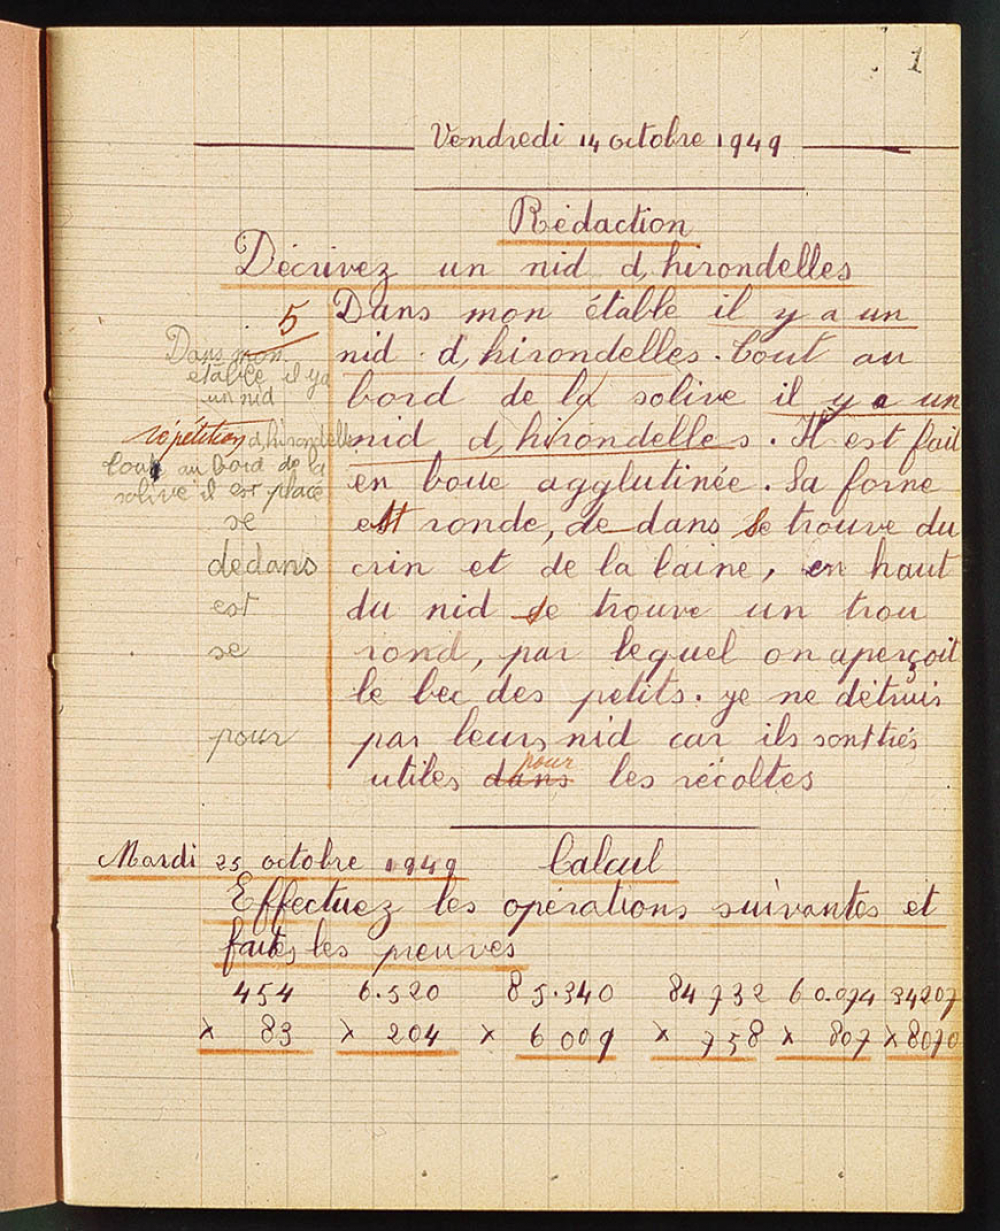 1
Vendredi 14 octobre 1949
Rédaction
Décrivez un nid d'hirondelles
5
Dans mon étable il y a un
nid d'hirondelles. Tout au
bord de la solive il y a un
nid d'hirondelles. Il est fait
en boue agglutinée. Sa forne
est ronde, de dans se trouve du
crin et de la laine, en haut
du nid se trouve un trou
rond, par lequel on aperçoit
le bec des petits. je ne détruis
par leurs nid car ils sont très
utiles dans pour les récoltes
Dans mon
étable il y a
un nid
répétition d'hirondelle
tout au bord de la
solive il est placé
se
dedans
est
se
pour
Mardi 25 octobre 1949 Calcul
Effectuez les opérations suivantes et
faites les preuves
454 6.520 85.340 84732 60.074 34207
x 83 x 204 x 6009 x 758 x 807 x 8070